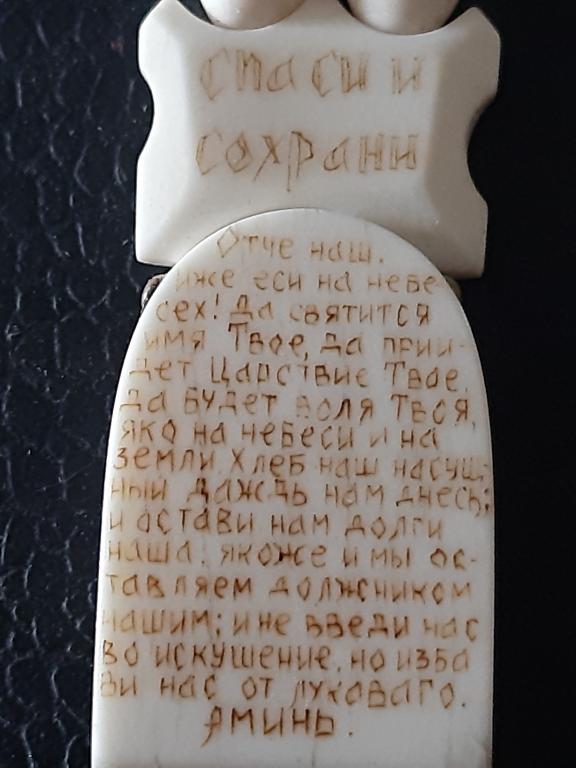 Спаси и
сохрани
Отче наш.
иже еси на небе
сех! Да святится
имя Твое, да прии-
дет Царствие Твое,
да будет воля Твоя,
яко на небеси и на
земли. Хлеб наш насущ-
ный даждь нам днесь;
и остави нам долги
наша, якоже и мы ос-
тавляем должником
нашим; и не введи нас
во искушение, но изба
ви нас от лукаваго.
Аминь.